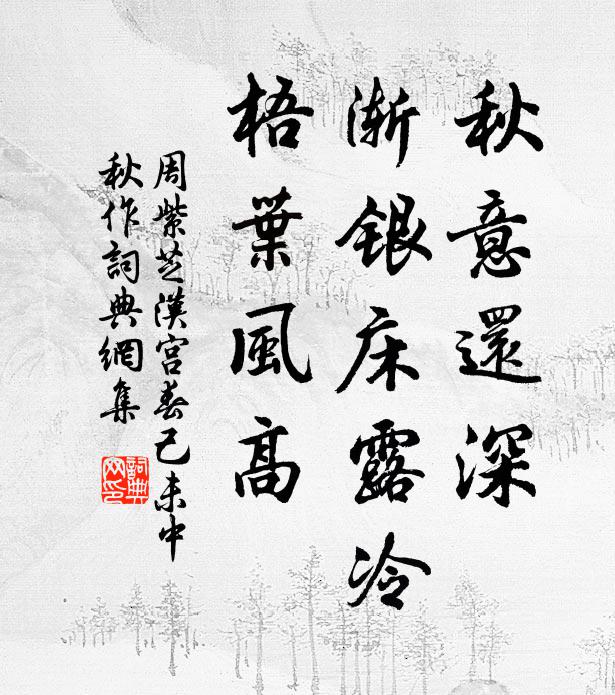 秋意還深
漸銀床露冷
梧葉風高
周紫芝漢宮春己未中
秋作詞典網集
詞典
网印